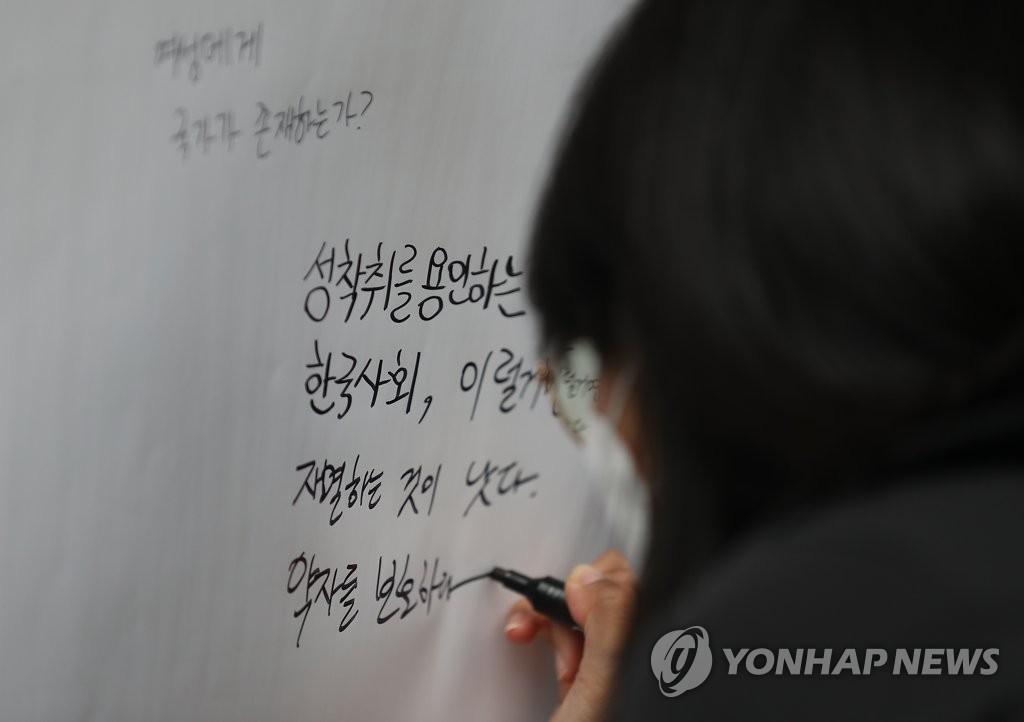 여성에게
국가가 존재하는가?
성착취를 용인하는
한국사회, 이럴거
재결하는 것이 낫다.
약자를 보호하
YONHAP NEWS